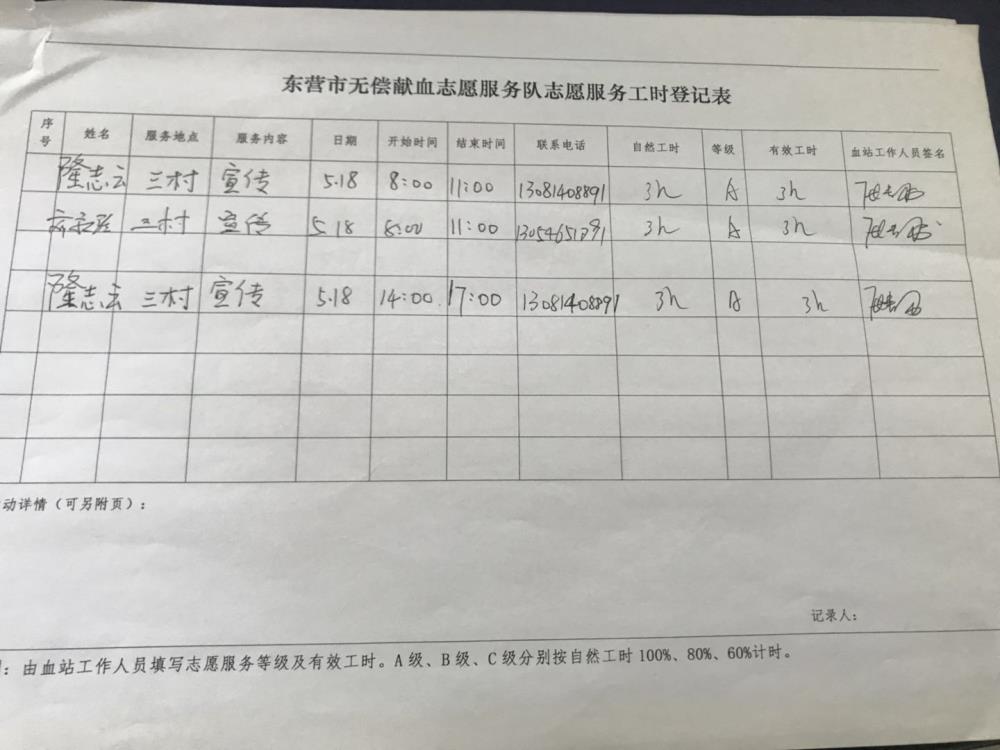 东营市无偿献血志愿服务队志愿服务工时登记表
序号 姓名 服务地点 服务内容 日期 开始时间 结束时间 联系电话 自然工时 等级 有效工时 血站工作人员签名
隆志云 三村 宣传 5.18 8:00 11:00 13081408891 3h A 3h
三村 宣传 5.18 8:00 11:00 3h A 3h
隆志云 三村 宣传 5.18 14:00 17:00 13081408891 3h A 3h
动详情（可另附页）：
记录人：
：由血站工作人员填写志愿服务等级及有效工时。A级、B级、C级分别按自然工时100%、80%、60%计时。